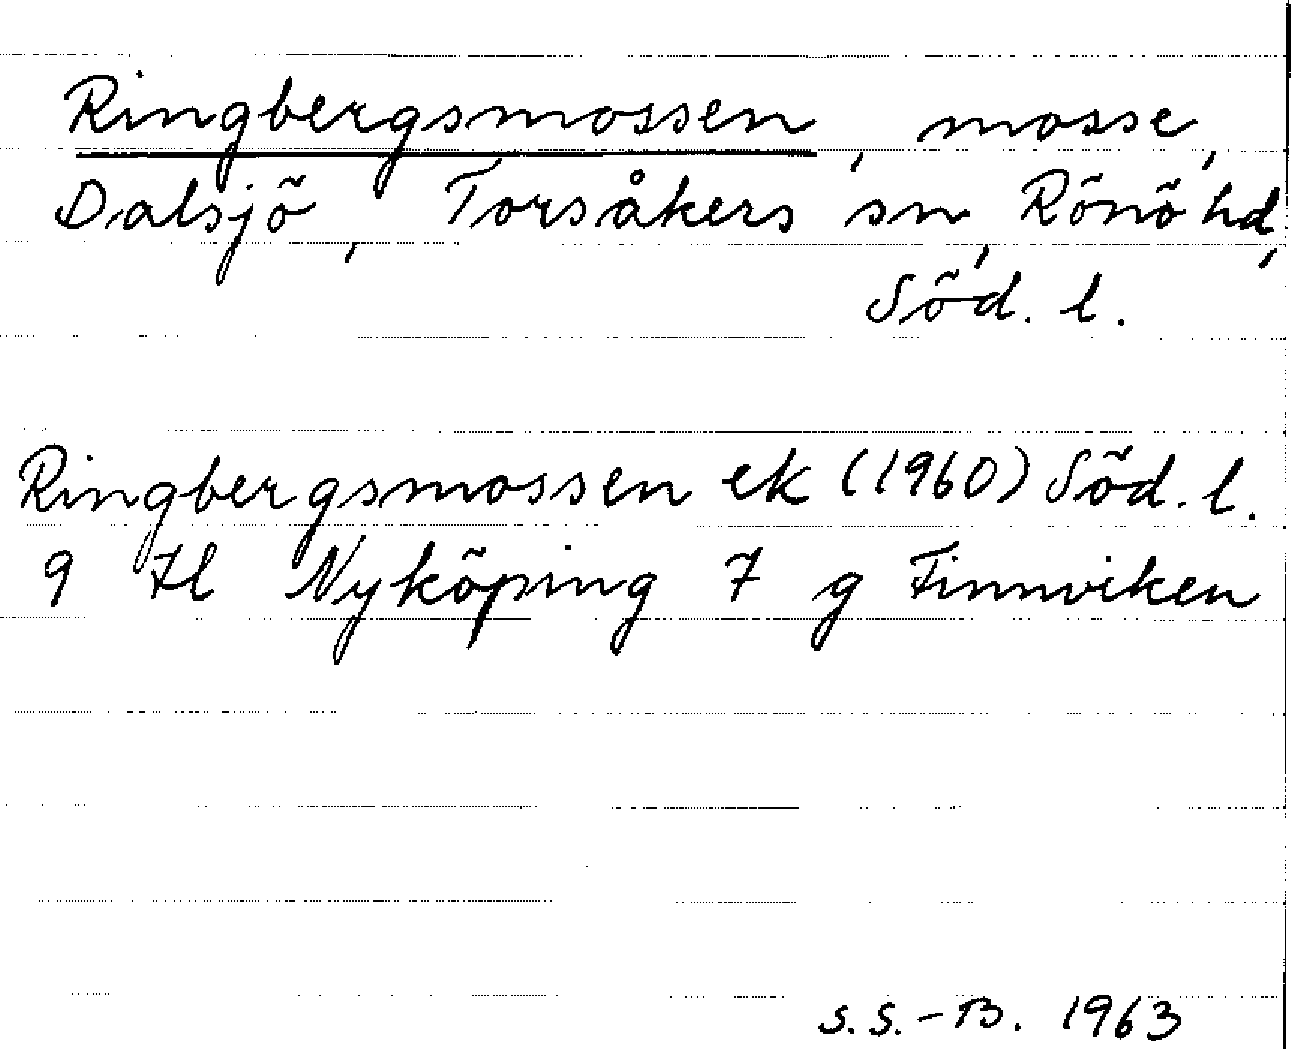 Ringbergsmossen, mosse,
Dalsjö, Torsåkers sn, Rönö hd,
Söd. l.
Ringbergsmossen ek (1960) Söd. l.
9 H Nyköping 7 g Finnviken
S.S.-B. 1963